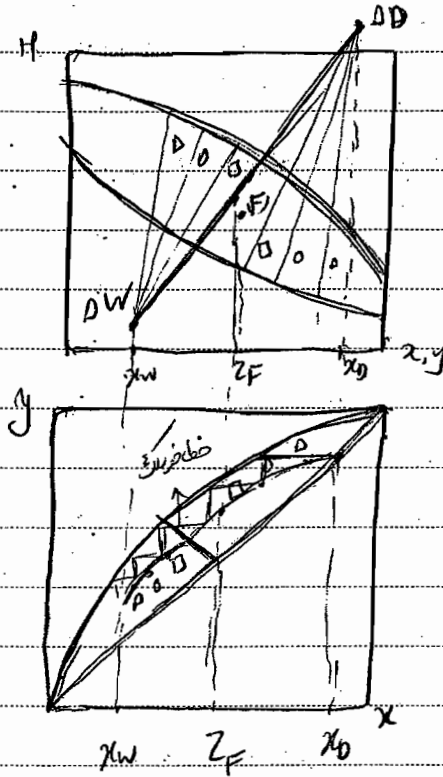 H
ΔD
F
ΔW
x_W
z_F
x_D
x, y
y
خط خوراک
x
x_W
z_F
x_D